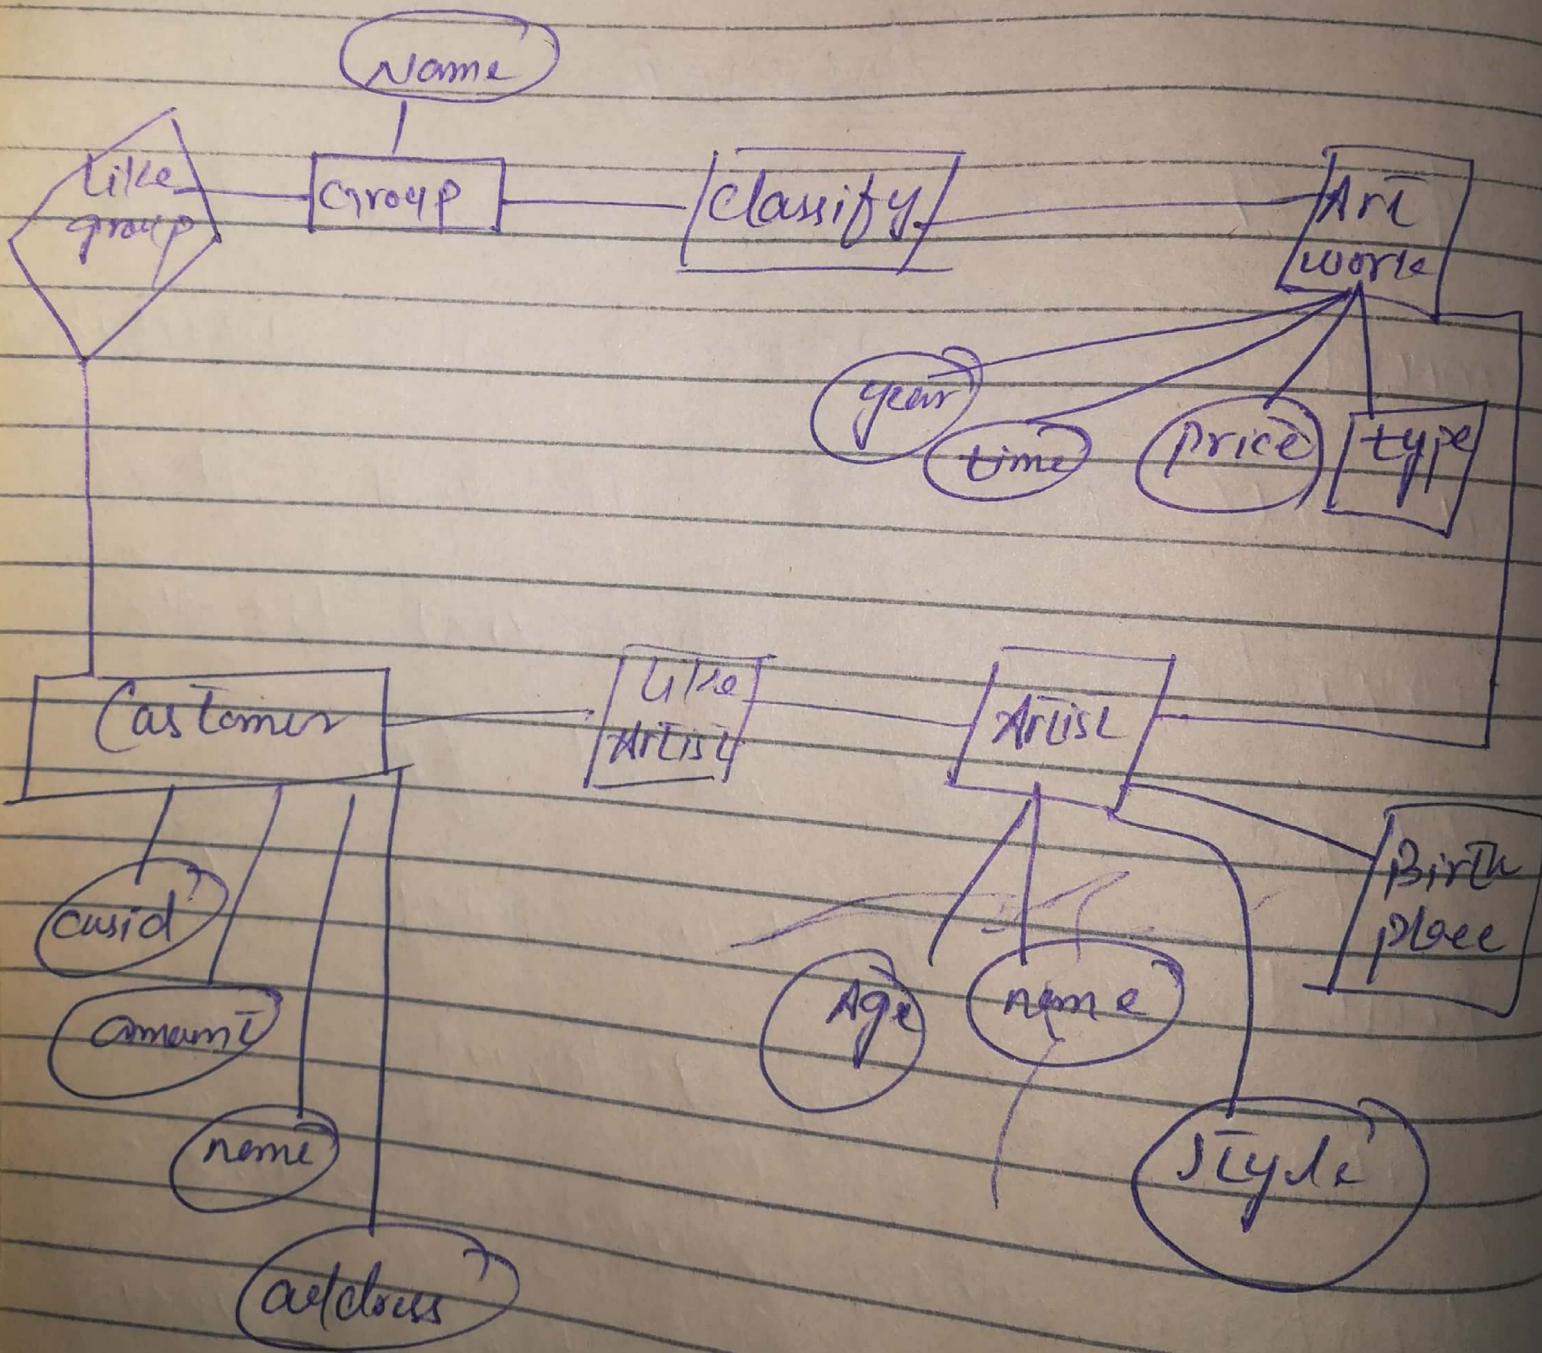 Name
Like
group
Group
Classify
Art
work
year
time
price
type
Customer
Like
Artist
Artist
Birth
place
cusid
amount
name
address
Age
name
Style